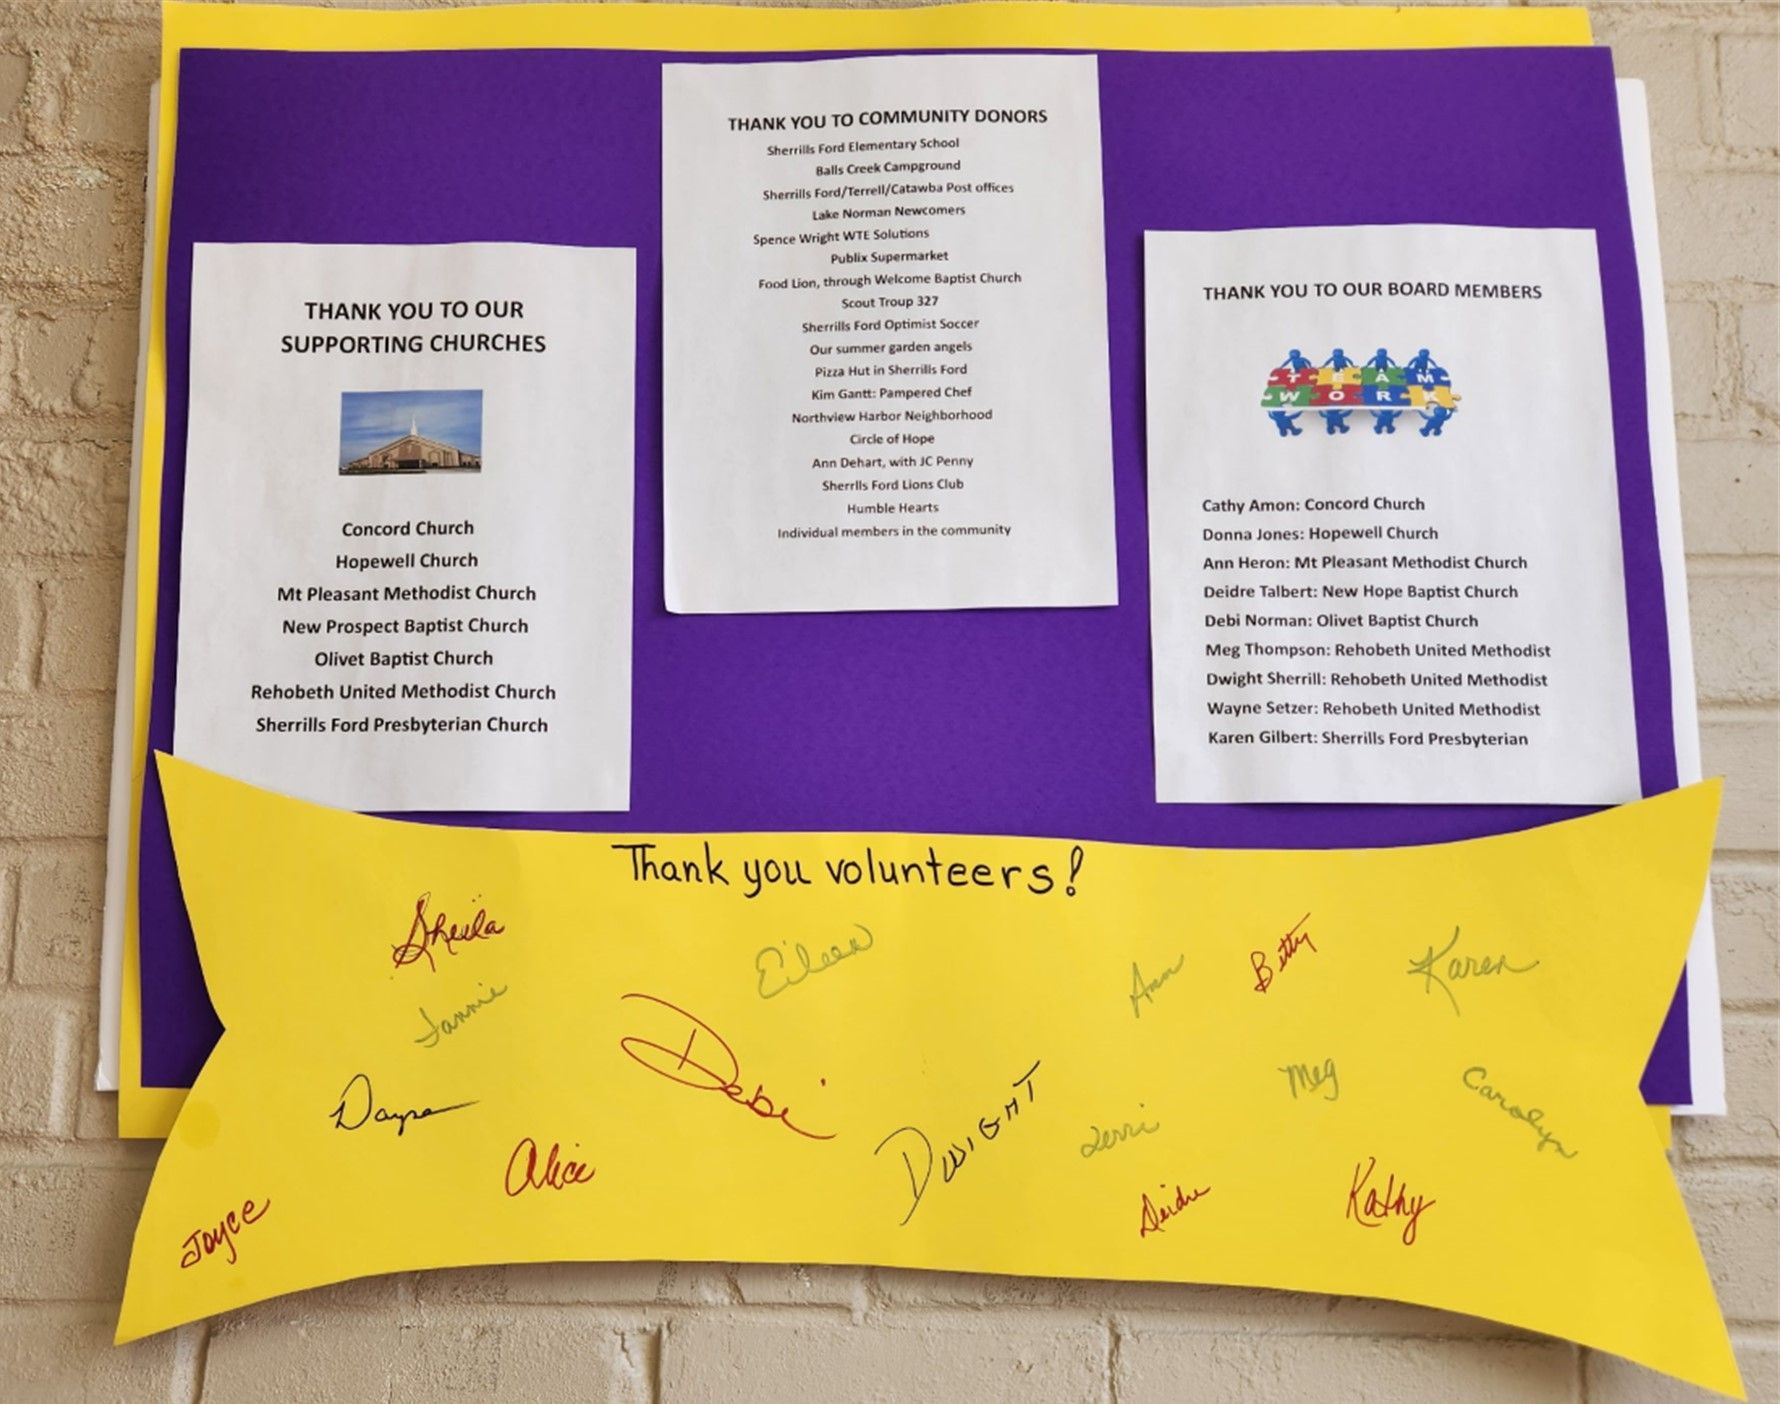 THANK YOU TO OUR
SUPPORTING CHURCHES
Concord Church
Hopewell Church
Mt Pleasant Methodist Church
New Prospect Baptist Church
Olivet Baptist Church
Rehobeth United Methodist Church
Sherrills Ford Presbyterian Church
THANK YOU TO COMMUNITY DONORS
Sherrills Ford Elementary School
Balls Creek Campground
Sherrills Ford/Terrell/Catawba Post offices
Lake Norman Newcomers
Spence Wright WTE Solutions
Publix Supermarket
Food Lion, through Welcome Baptist Church
Scout Troup 327
Sherrills Ford Optimist Soccer
Our summer garden angels
Pizza Hut in Sherrills Ford
Kim Gantt: Pampered Chef
Northview Harbor Neighborhood
Circle of Hope
Ann Dehart, with JC Penny
Sherrlls Ford Lions Club
Humble Hearts
Individual members in the community
THANK YOU TO OUR BOARD MEMBERS
TEAM
WORK
Cathy Amon: Concord Church
Donna Jones: Hopewell Church
Ann Heron: Mt Pleasant Methodist Church
Deidre Talbert: New Hope Baptist Church
Debi Norman: Olivet Baptist Church
Meg Thompson: Rehobeth United Methodist
Dwight Sherrill: Rehobeth United Methodist
Wayne Setzer: Rehobeth United Methodist
Karen Gilbert: Sherrills Ford Presbyterian
Thank you volunteers!
Sheila
Eileen
Ann
Betty
Karen
Debi
Meg
Carolyn
DWIGHT
Terri
Alice
Deidre
Kathy
Joyce